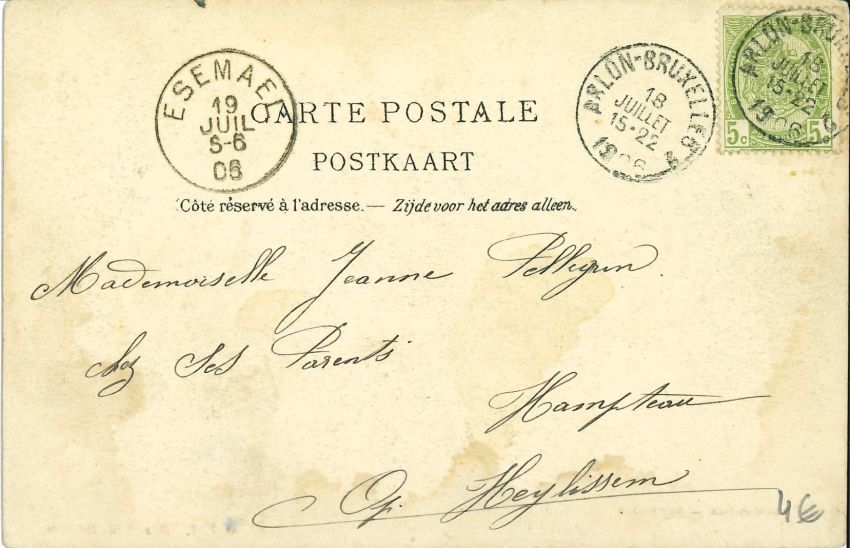 ESEMAEL
19
JUIL
S-6
06
ARLON-BRUXELLES
18
JUILLET
15-22
1906
ARLON-BRUX
18
JUILLET
15-22
1906
5c 5c
CARTE POSTALE
POSTKAART
Côté réservé à l'adresse. — Zijde voor het adres alleen.
Mademoiselle Jeanne Pellegrin
chez Ses Parents
Hampteau
Op Heylissem
4€